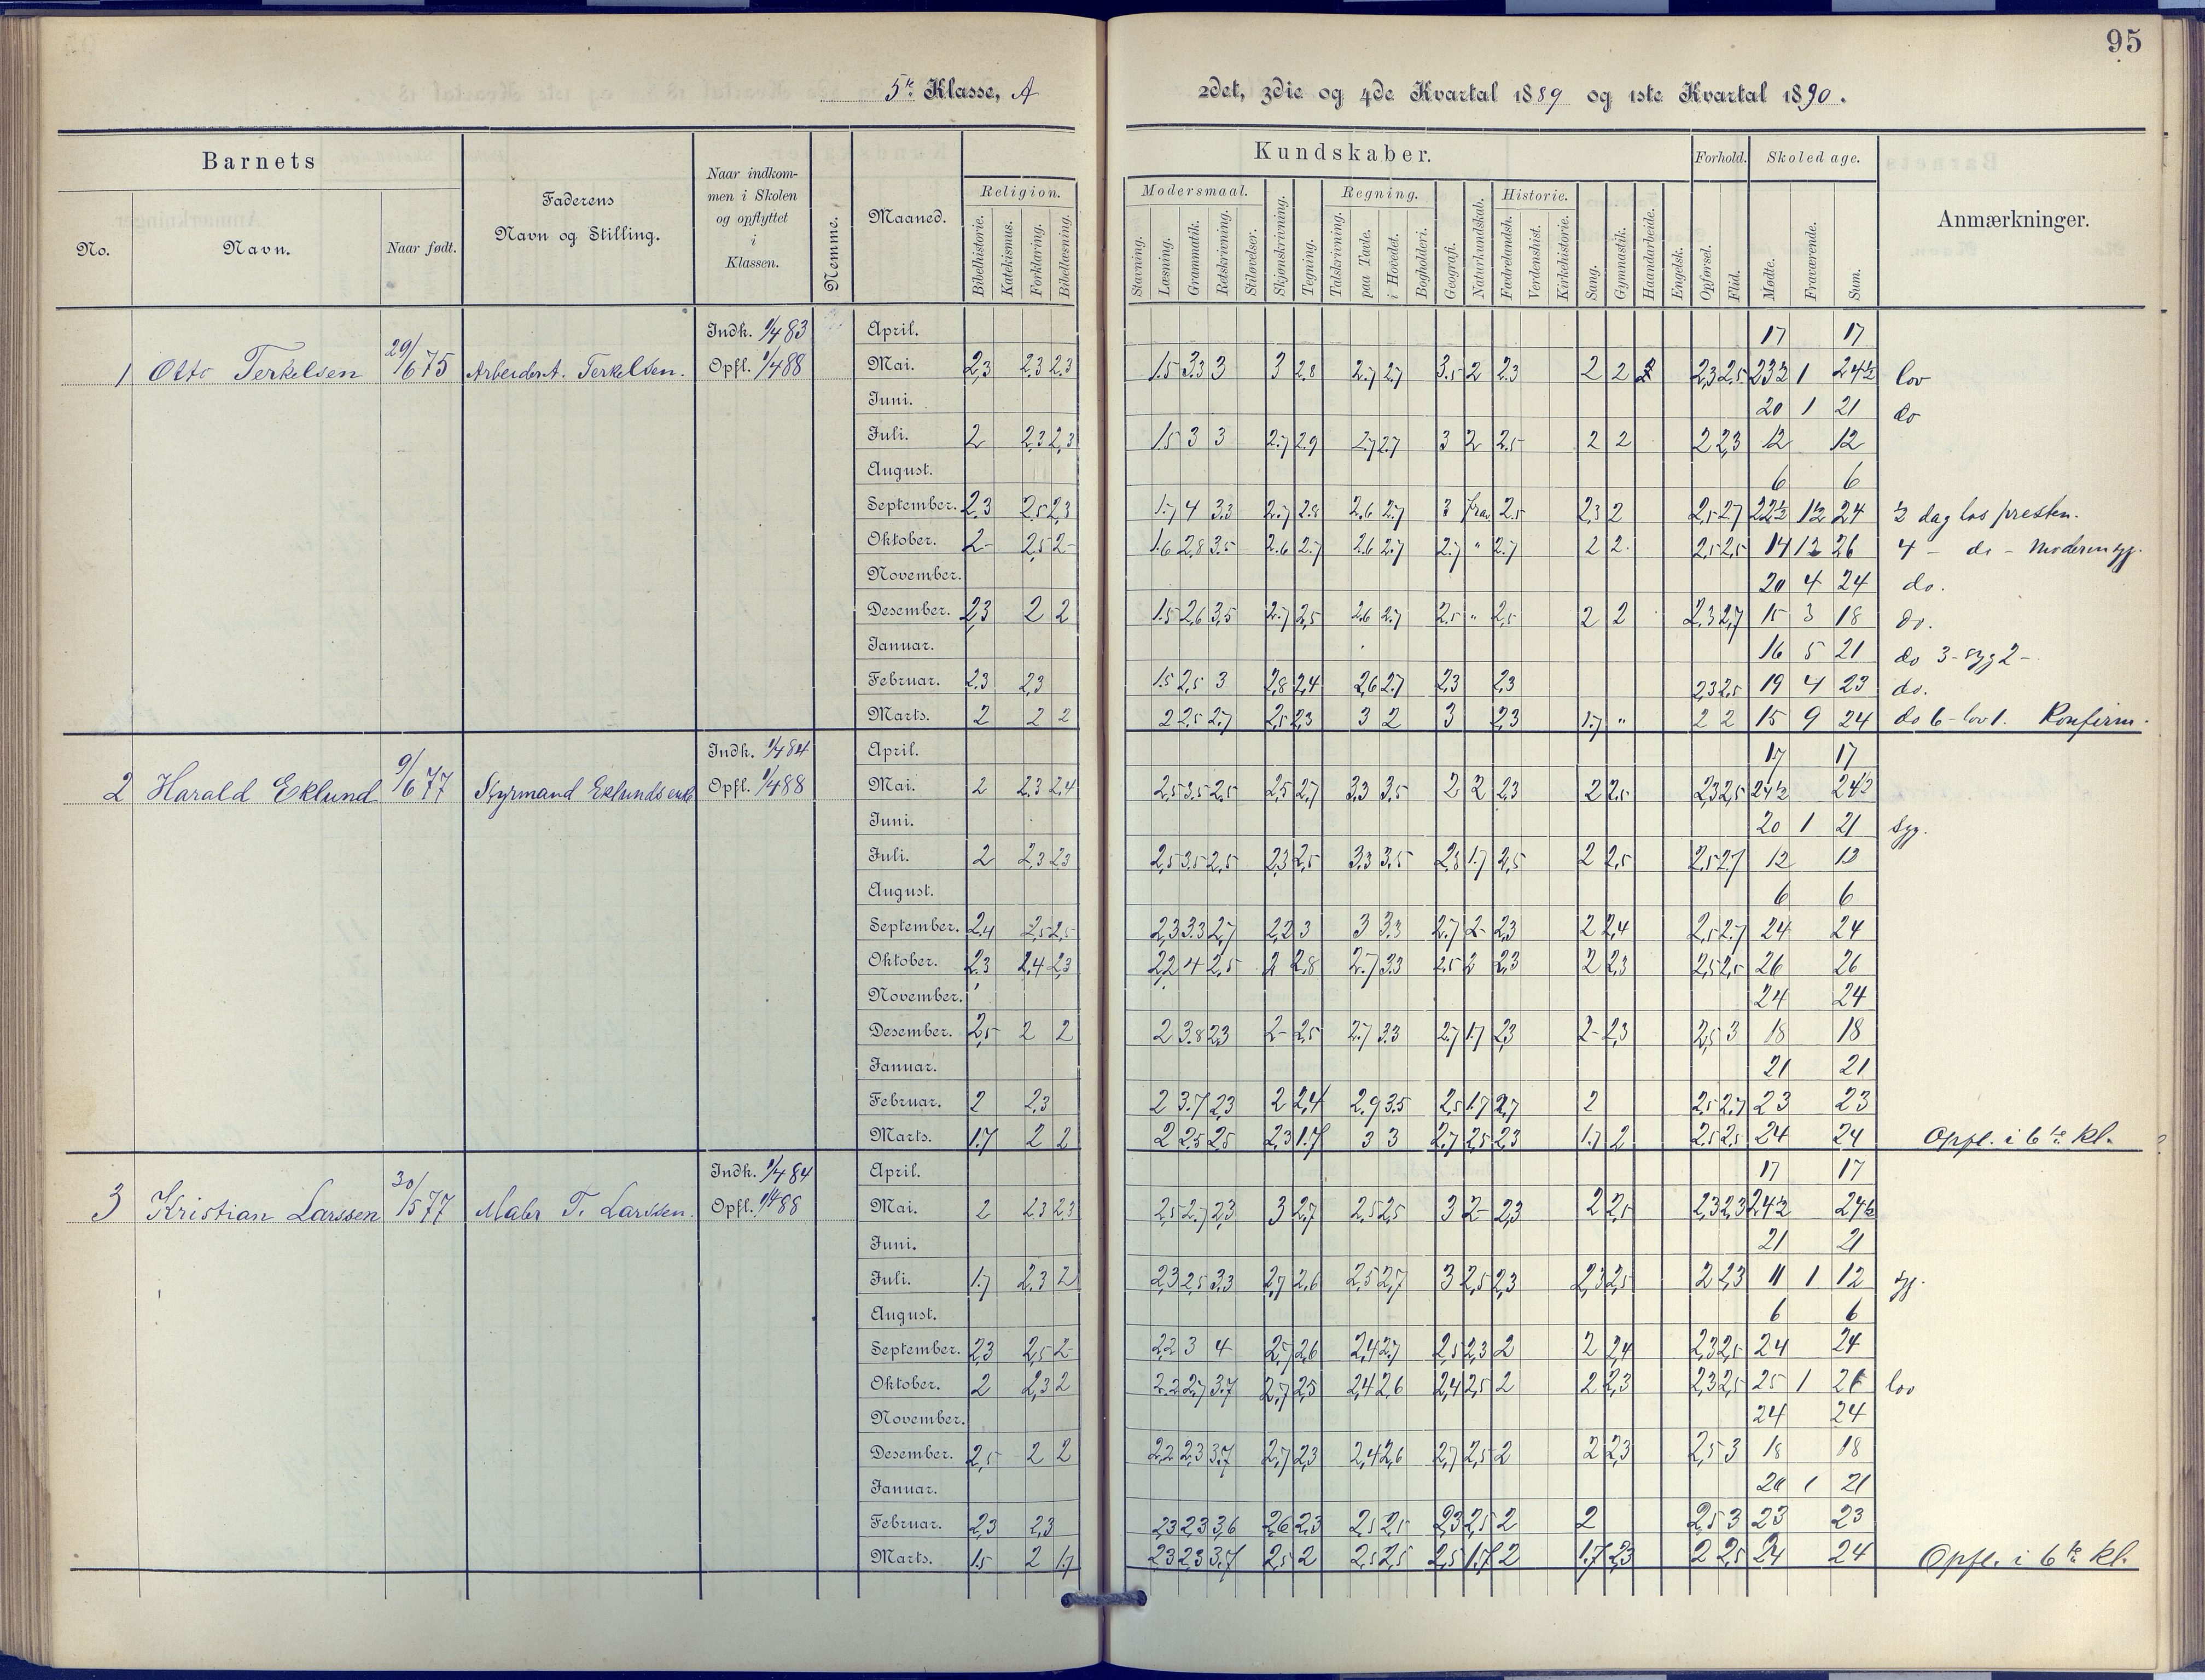 95
5te Klasse, A
2det, 3die og 4de Kvartal 1889 og 1ste Kvartal 1890.
Barnets
No.
Navn.
Naar født.
Faderens
Navn og Stilling.
Naar indkom-
men i Skolen
og opflyttet
i
Klassen.
Nemme.
Maaned.
Religion.
Bibelhistorie.
Katekismus.
Forklaring.
Bibellæsning.
Kundskaber.
Modersmaal.
Stavning.
Læsning.
Grammatik.
Retskrivning.
Stiløvelser.
Skjønskrivning.
Tegning.
Regning.
Talskrivning.
paa Tavle.
i Hovedet.
Bogholderi.
Geografi.
Naturkundskab.
Historie.
Fædrelandsh.
Verdenshist.
Kirkehistorie.
Sang.
Gymnastik.
Haandarbeide.
Engelsk.
Forhold.
Opførsel.
Flid.
Skoledage.
Mødte.
Fraværende.
Sum.
Anmærkninger.
Indk. 1/4 83 April. 17 17
1 Otto Terkelsen 29/6 75 Arbeider A. Terkelsen. Opfl. 1/4 88 Mai. 2,3 2.3 2.3 1.5 3.3 3 3 2.8 2.7 2.7 3.5 2 2.3 2 2 2 2,3 2,5 23½ 1 24½ lov
Juni. 20 1 21 do
Juli. 2 2,3 2,3 1.5 3 3 2.7 2.9 2.7 2.7 3 2 2.5 2 2 2 2,3 12 12
August. 6 6
September. 2,3 2.5 2,3 1.7 4 3.3 2.7 2.8 2.6 2.7 3 frav. 2.5 2,3 2 2,5 2,7 22½ 1½ 24 ½ dag hos presten.
Oktober. 2- 2,5 2- 1.6 2,8 3.5 2.6 2.7 2.6 2.7 2.7 " 2.7 2 2 2,5 2,5 14 12 26 4 - do - Moderen syg.
November. 20 4 24 do.
Desember. 2,3 2 2 1.5 2,6 3,5 2.7 2,5 2.6 2.7 2.5 " 2,5 2 2 2,3 2,7 15 3 18 do.
Januar. 16 5 21 do 3 - syg 2 -
Februar. 2,3 2,3 1.5 2,5 3 2,8 2,4 2,6 2.7 2,3 2,3 2,3 2,5 19 4 23 do.
Marts. 2 2 2 2 2.5 2.7 2,5 2,3 3 2 3 2,3 1.7 " 2 2 15 9 24 do 6 - lov 1. Konfirm.
Indk. 1/4 84 April. 17 17
2 Harald Eklund 9/6 77 Styrmand Eklunds enke Opfl. 1/4 88 Mai. 2 2.3 2.4 2,5 3.5 2.5 2,5 2,7 3.3 3.5 2 2 2,3 2 2,5 2,3 2,5 24½ 24½
Juni. 20 1 21 syg.
Juli. 2 2,3 2,3 2,5 3.5 2,5 2,3 2,5 3.3 3.5 2,8 1.7 2,5 2 2,5 2.5 2.7 12 12
August. 6 6
September. 2.4 2,5 2,5 2,3 3.3 2,7 2,2 3 3 3.3 2.7 2- 2,3 2 2,4 2,5 2.7 24 24
Oktober. 2.3 2,4 2,3 2,2 4 2,5 2 2,8 2.7 3.3 2.5 2 2,3 2 2,3 2,5 2,5 26 26
November. 24 24
Desember. 2,5 2 2 2 3.8 2.3 2- 2,5 2.7 3.3 2.7 1.7 2,3 2- 2,3 2,5 3 18 18
Januar. 21 21
Februar. 2 2,3 2 3.7 2,3 2 2,4 2.9 3.5 2,5 1.7 2,7 2 2,5 2.7 23 23
Marts. 1.7 2 2 2 2.5 2.5 2,3 1.7 3 3 2,7 2,5 2,3 1.7 2 2,5 2,5 24 24 Opfl. i 6te kl.
Indk. 1/4 84 April. 17 17
3 Kristian Larssen 30/5 77 Maler T. Larssen. Opfl. 1/4 88 Mai. 2 2.3 2.3 2,5 2.7 2,3 3 2,7 2.5 2.5 3 2- 2,3 2 2,5 2,3 2,3 24½ 24½
Juni. 21 21
Juli. 1.7 2,3 2 2,3 2.5 3.3 2,7 2,6 2.5 2,7 3 2,5 2,3 2,3 2,5 2 2,3 11 1 12 syg.
August. 6 6
September. 2,3 2,5 2- 2,2 3 4 2,7 2,6 2,4 2.7 2,5 2,3 2 2 2,4 2,3 2,5 24 24
Oktober. 2 2,3 2 2.2 2.7 3.7 2,7 2.5 2,4 2.6 2,4 2,5 2 2 2,3 2,3 2,5 25 1 26 lov
November. 24 24
Desember. 2,5 2 2 2,2 2.3 3.7 2,7 2,3 2,4 2,6 2,7 2,5 2 2 2,3 2,5 3 18 18
Januar. 20 1 21
Februar. 2,3 2,3 2,3 2,3 3,6 2,6 2,3 2,5 2,5 2,3 2,5 2 2 2,5 3 23 23
Marts. 1.5 2 1.7 2,3 2,3 3.7 2,5 2 2,5 2,5 2,5 1.7 2 1.7 2,3 2 2,5 24 24 Opfl. i 6te kl.